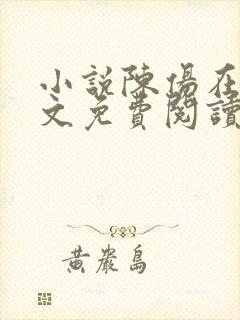 小說陳陽在
文免費閱讀
黃巖島